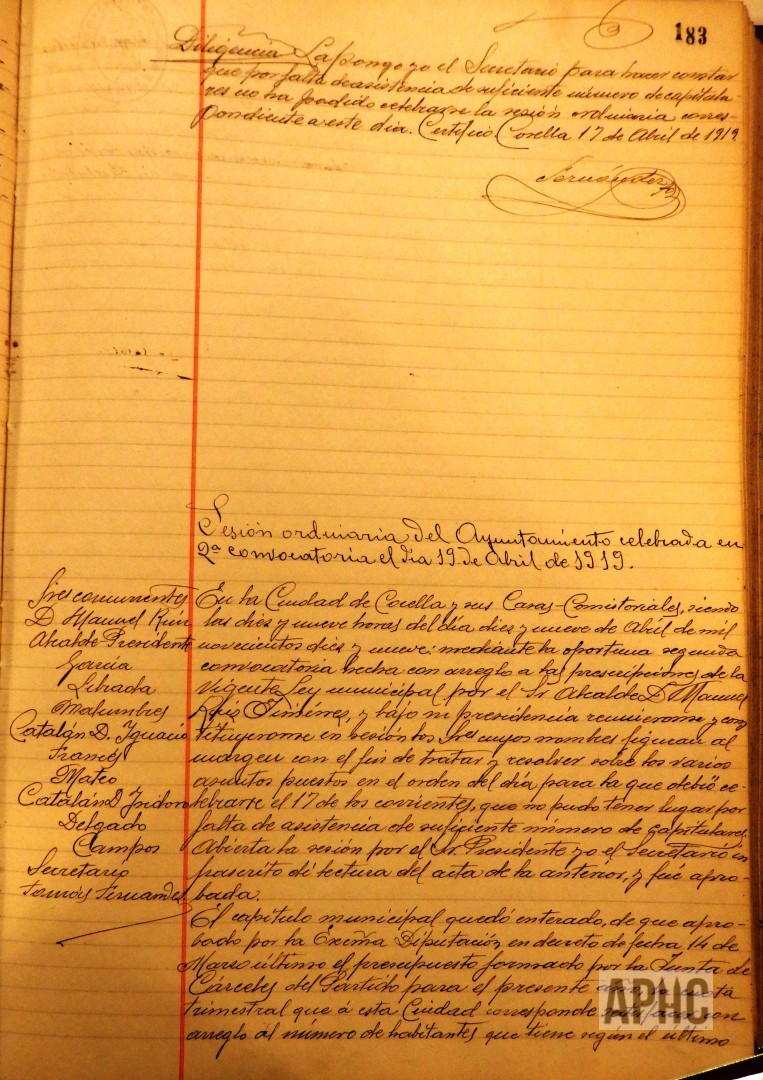 183
Diligencia La pongo yo el Secretario para hacer constar
que por falta de asistencia de suficiente número de capitula
res no ha podido celebrarse la sesión ordinaria corres-
pondiente a este dia. Certifico Corella 17 de Abril de 1919
Fernández
Sesión ordinaria del Ayuntamiento celebrada en
2ª convocatoria el día 19 de Abril de 1919.
Sres concurrentes
D Manuel Ruiz
Alcalde Presidente
García
Librada
Malumbres
Catalán D. Ignacio
Francés
Mateo
Catalán D Isidoro
Delgado
Campos
Secretario
Tomás Fernandez
En la Ciudad de Corella y sus Casas-Consistoriales, siendo
las diez y nueve horas del día diez y nueve de Abril de mil
novecientos diez y nueve: mediante la oportuna segunda
convocatoria hecha con arreglo a las prescripciones de la
Vigente Ley municipal por el Sr Alcalde D Manuel
Ruiz Jiménez, y bajo su presidencia reunieronse y cons
tituyeronse en sesión los Sres cuyos nombres figuran al
margen con el fin de tratar y resolver sobre los varios
asuntos puestos en el orden del día para la que debió ce-
lebrarse el 17 de los corrientes, que no pudo tener lugar por
falta de asistencia de suficiente número de capitulares.
Abierta la sesión por el Sr. Presidente yo el Secretario in
frascrito di lectura del acta de la anterior, y fué apro-
bada.
El capítulo municipal quedó enterado, de que apro-
bado por la Excma Diputación en decreto de fecha 14 de
Marzo último el presupuesto formado por la Junta de
Cárceles del Partido para el presente
trimestral que á esta Ciudad corresponde con
arreglo al número de habitantes que tiene según el último
APHC